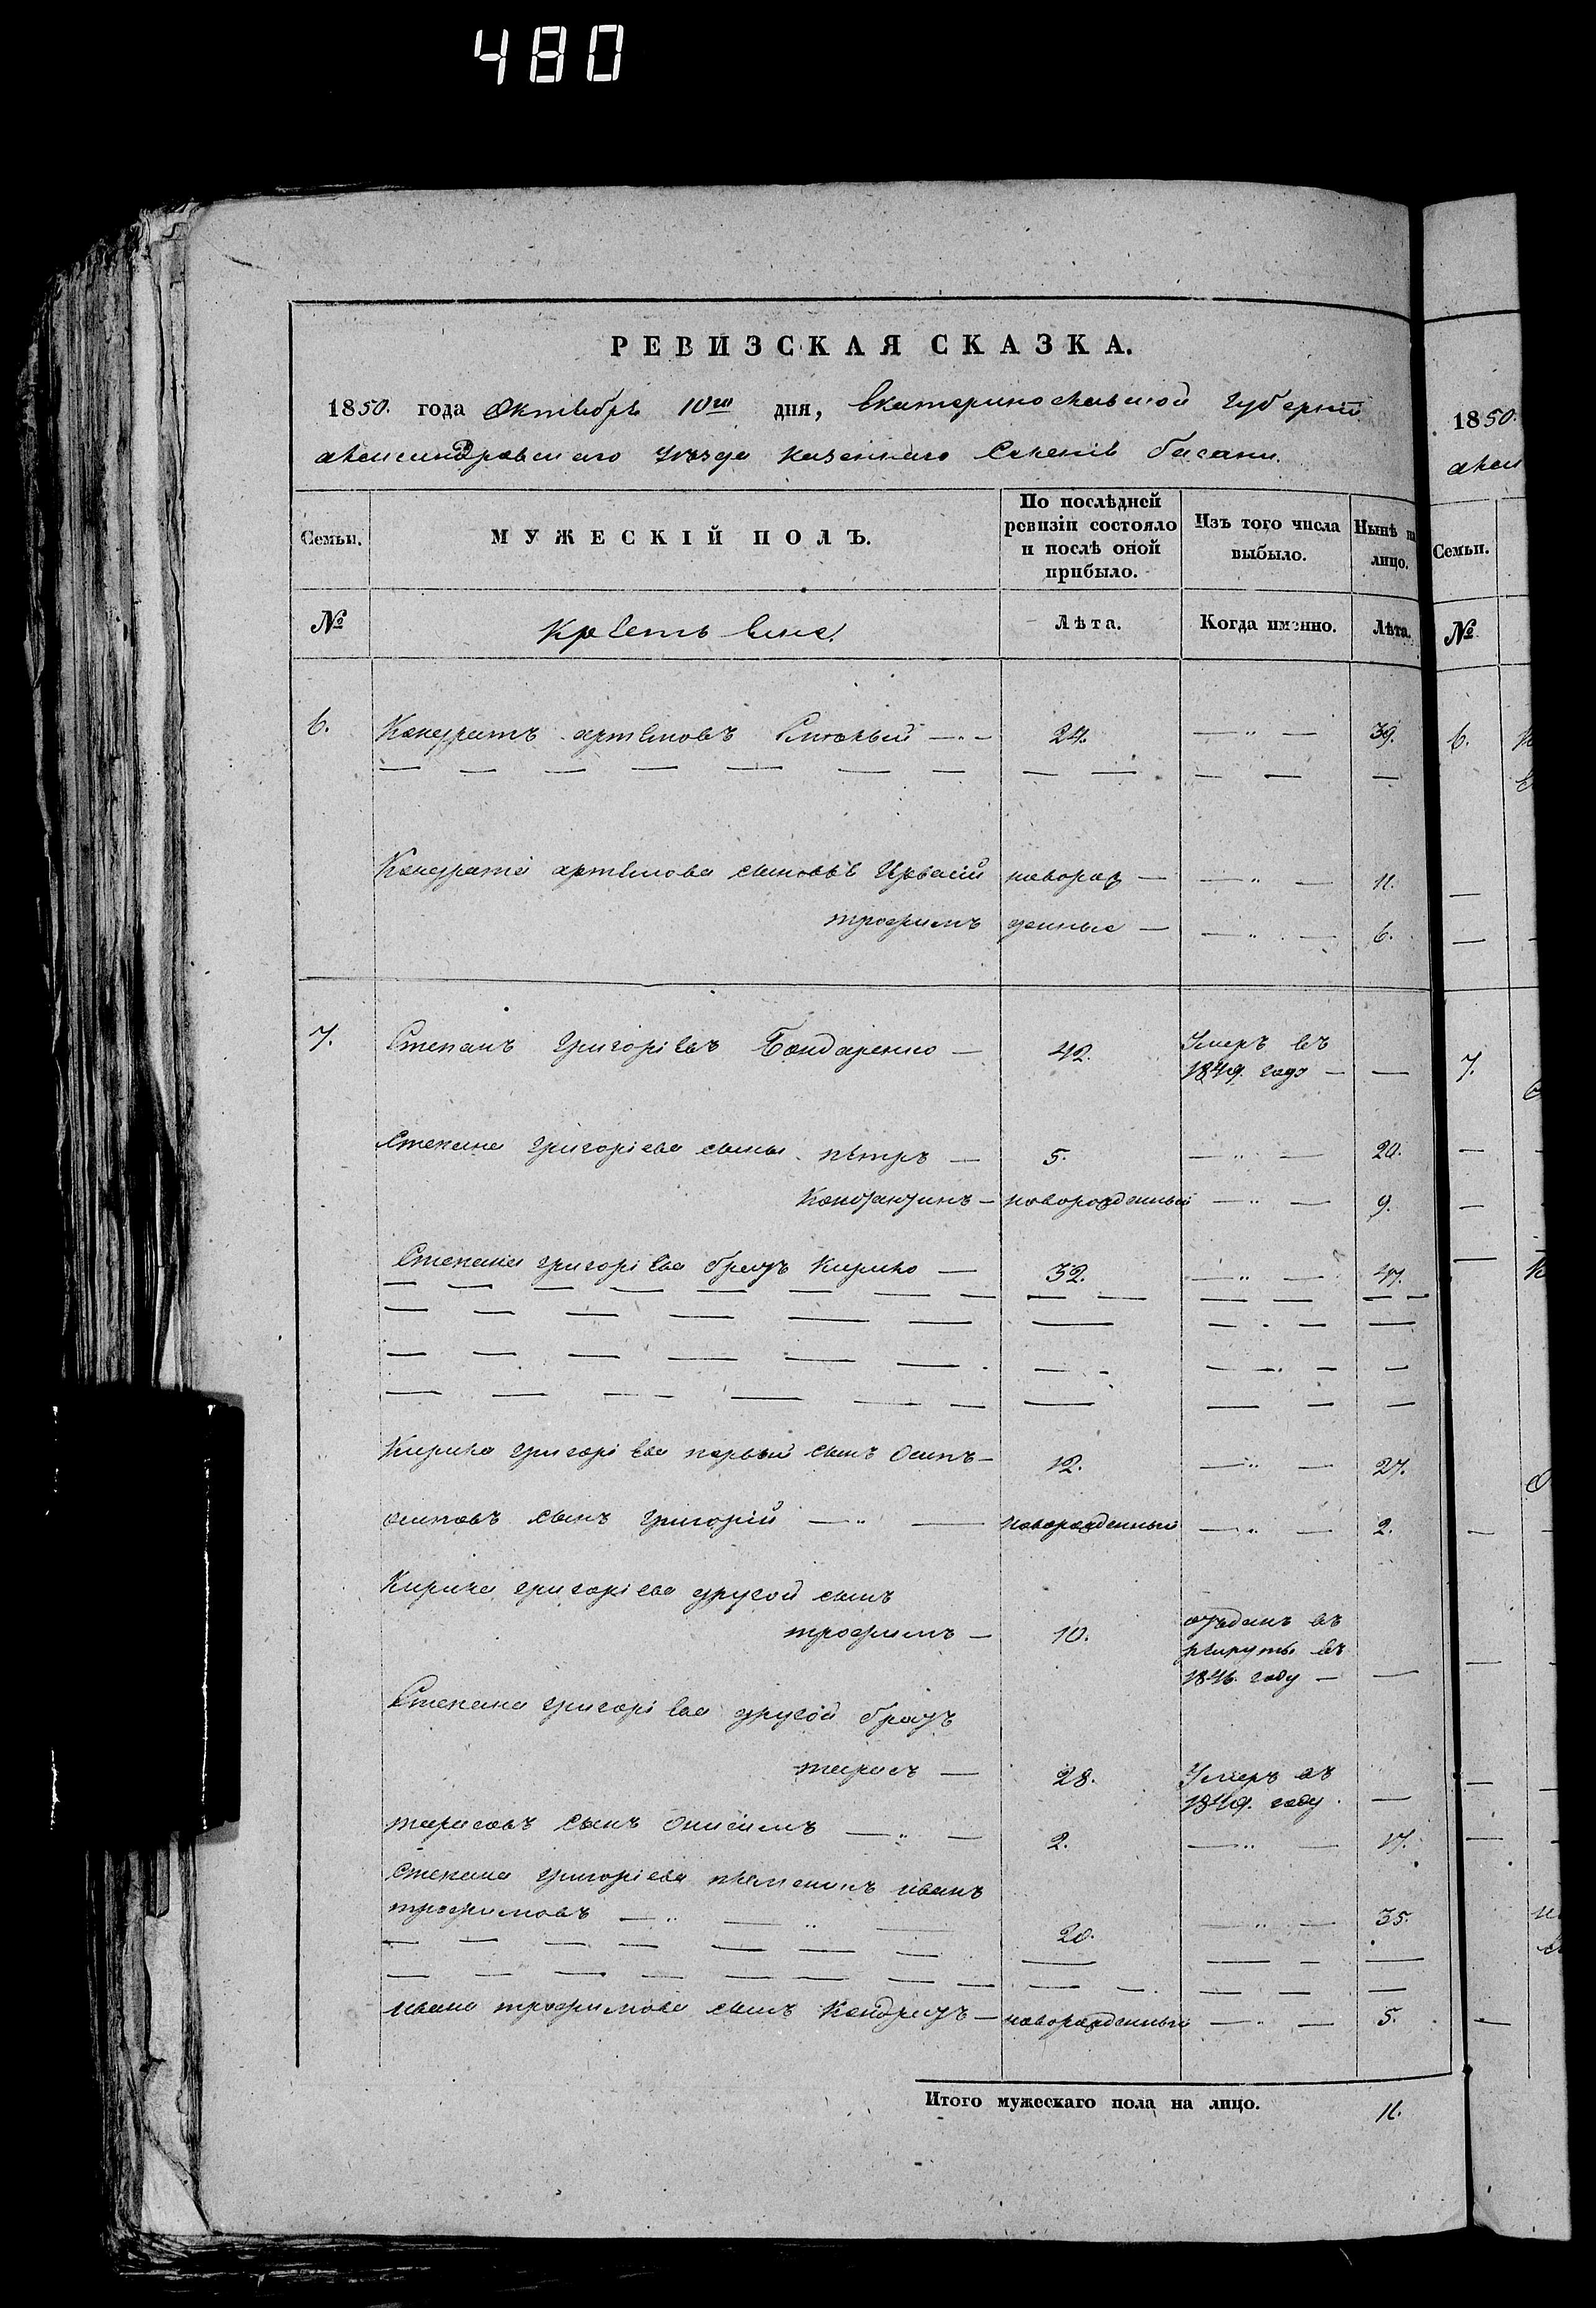 480
РЕВИЗСКАЯ СКАЗКА.
1850. года Октября 10го дня, Екатеринославской Губерніи
Александровскаго уѣзда казеннаго Селенія басани.
Семьи.
МУЖЕСКІЙ ПОЛЪ.
По послѣдней ревизіи состояло и послѣ оной прибыло.
Изъ того числа выбыло.
Нынѣ на лицо.
№
Крестьяне.
Лѣта.
Когда именно.
Лѣта.
6. Кондратъ артемовъ 24. 39.
Кондратія артемова сыновья новорож 11.
трофимъ денные 6.
7. Степанъ Григоріевъ Бондаренко 42. Умеръ въ
1849. годо
Степана Григоріева сыны петръ 5. 20.
Константинъ новорожденный 9.
Степана григоріева братъ Кирило 32. 47.
Кирила григоріева первый сынъ Осипъ 12. 27.
осиповъ сынъ григорій новорожденный 2.
Кирила григоріева другой сынъ
трофимъ 10. отъданъ въ
рекруты въ
1846. году
Степана григоріева другой братъ
тарасъ 28. Умеръ въ
1849. году.
тарасовъ сынъ Онисимъ 2. 17.
Степана григоріева племеникъ иванъ
трофимовъ 20. 35.
ивана трофимова сынъ Кондратъ новорожденный 5.
Итого мужескаго пола на лицо. 11.
1850.
Семьи.
№
6.
7.